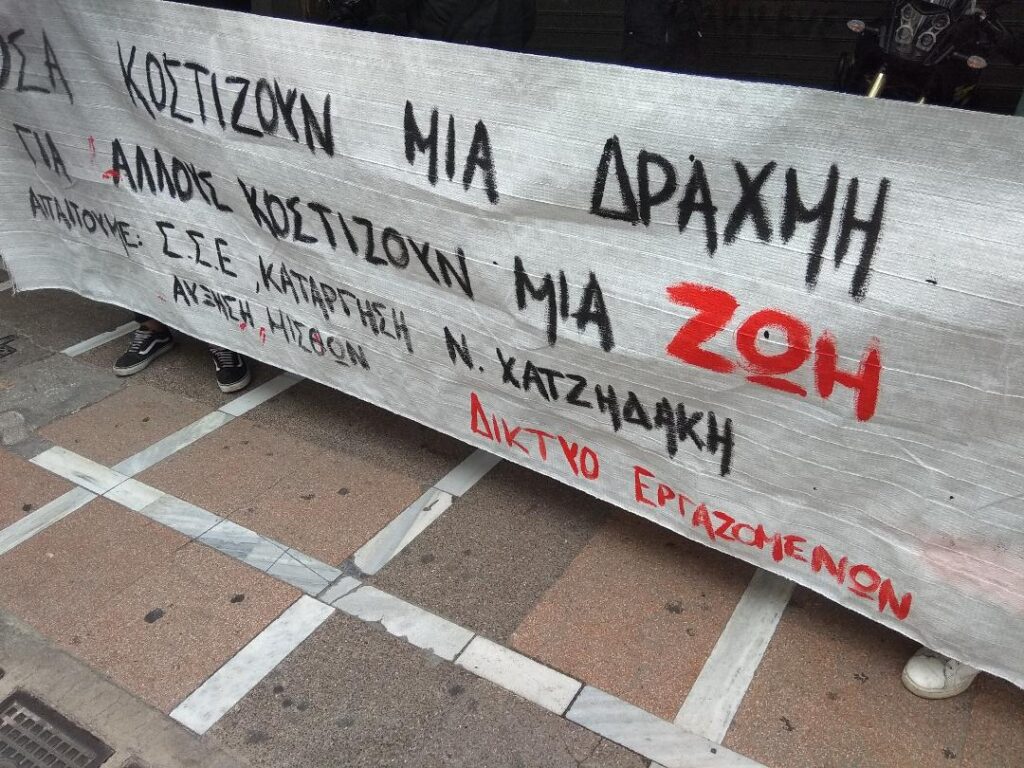 ΟΣΑ ΚΟΣΤΙΖΟΥΝ ΜΙΑ ΔΡΑΧΜΗ
ΓΙΑ ΑΛΛΟΥΣ ΚΟΣΤΙΖΟΥΝ ΜΙΑ ΖΩΗ
ΑΠΑΙΤΟΥΜΕ: Σ.Σ.Ε, ΚΑΤΑΡΓΗΣΗ Ν. ΧΑΤΖΗΔΑΚΗ
ΑΥΞΗΣΗ ΜΙΣΘΩΝ
ΔΙΚΤΥΟ ΕΡΓΑΖΟΜΕΝΩΝ